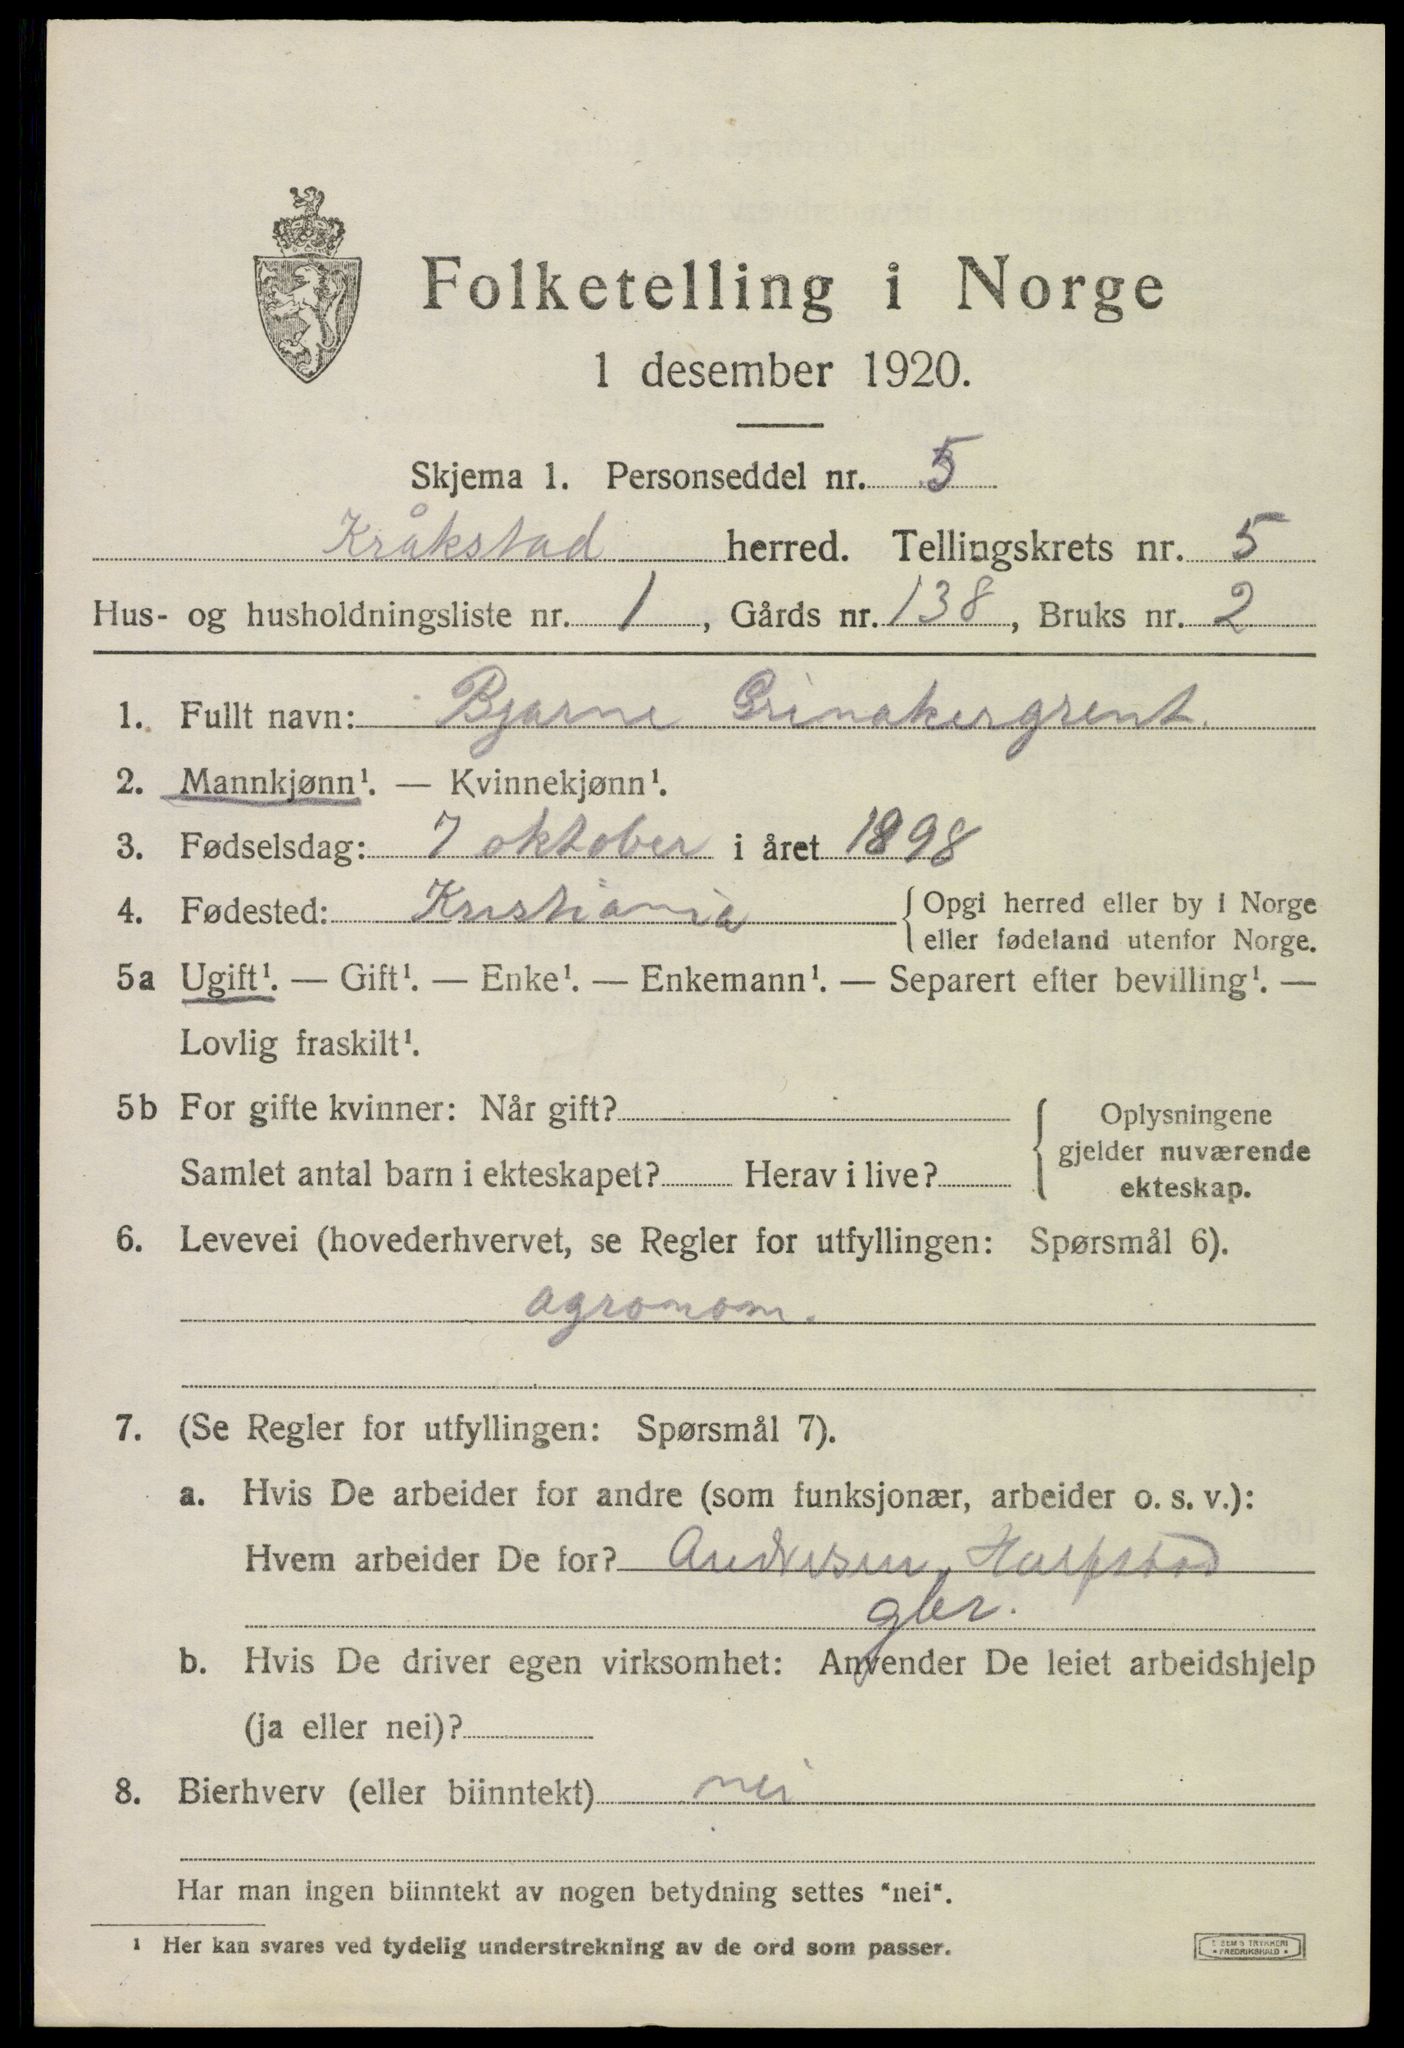 Folketelling i Norge
1 desember 1920.
Skjema 1. Personseddel nr. 5
Kråkstad herred. Tellingskrets nr. 5
Hus- og husholdningsliste nr. 1, Gårds nr. 138, Bruks nr. 2
1. Fullt navn: Bjarne Grinakergrent.
2. Mannkjønn¹. — Kvinnekjønn¹.
3. Fødselsdag: 7 oktober i året 1898
4. Fødested: Kristiania {Opgi herred eller by i Norge
eller fødeland utenfor Norge.
5a Ugift¹. — Gift¹. — Enke¹. — Enkemann¹. — Separert efter bevilling¹. —
Lovlig fraskilt¹.
5b For gifte kvinner: Når gift?
Samlet antal barn i ekteskapet? Herav i live?
Oplysningene
gjelder nuværende
ekteskap.
6. Levevei (hovederhvervet, se Regler for utfyllingen: Spørsmål 6).
agronom.
7. (Se Regler for utfyllingen: Spørsmål 7).
a. Hvis De arbeider for andre (som funksjonær, arbeider o. s. v.):
Hvem arbeider De for? Andersen,
gbr.
b. Hvis De driver egen virksomhet: Anvender De leiet arbeidshjelp
(ja eller nei)?
8. Bierhverv (eller biinntekt) nei
Har man ingen biinntekt av nogen betydning settes "nei".
¹ Her kan svares ved tydelig understrekning av de ord som passer.
SEM'S TRYKKERI
• FREDRIKSHALD •